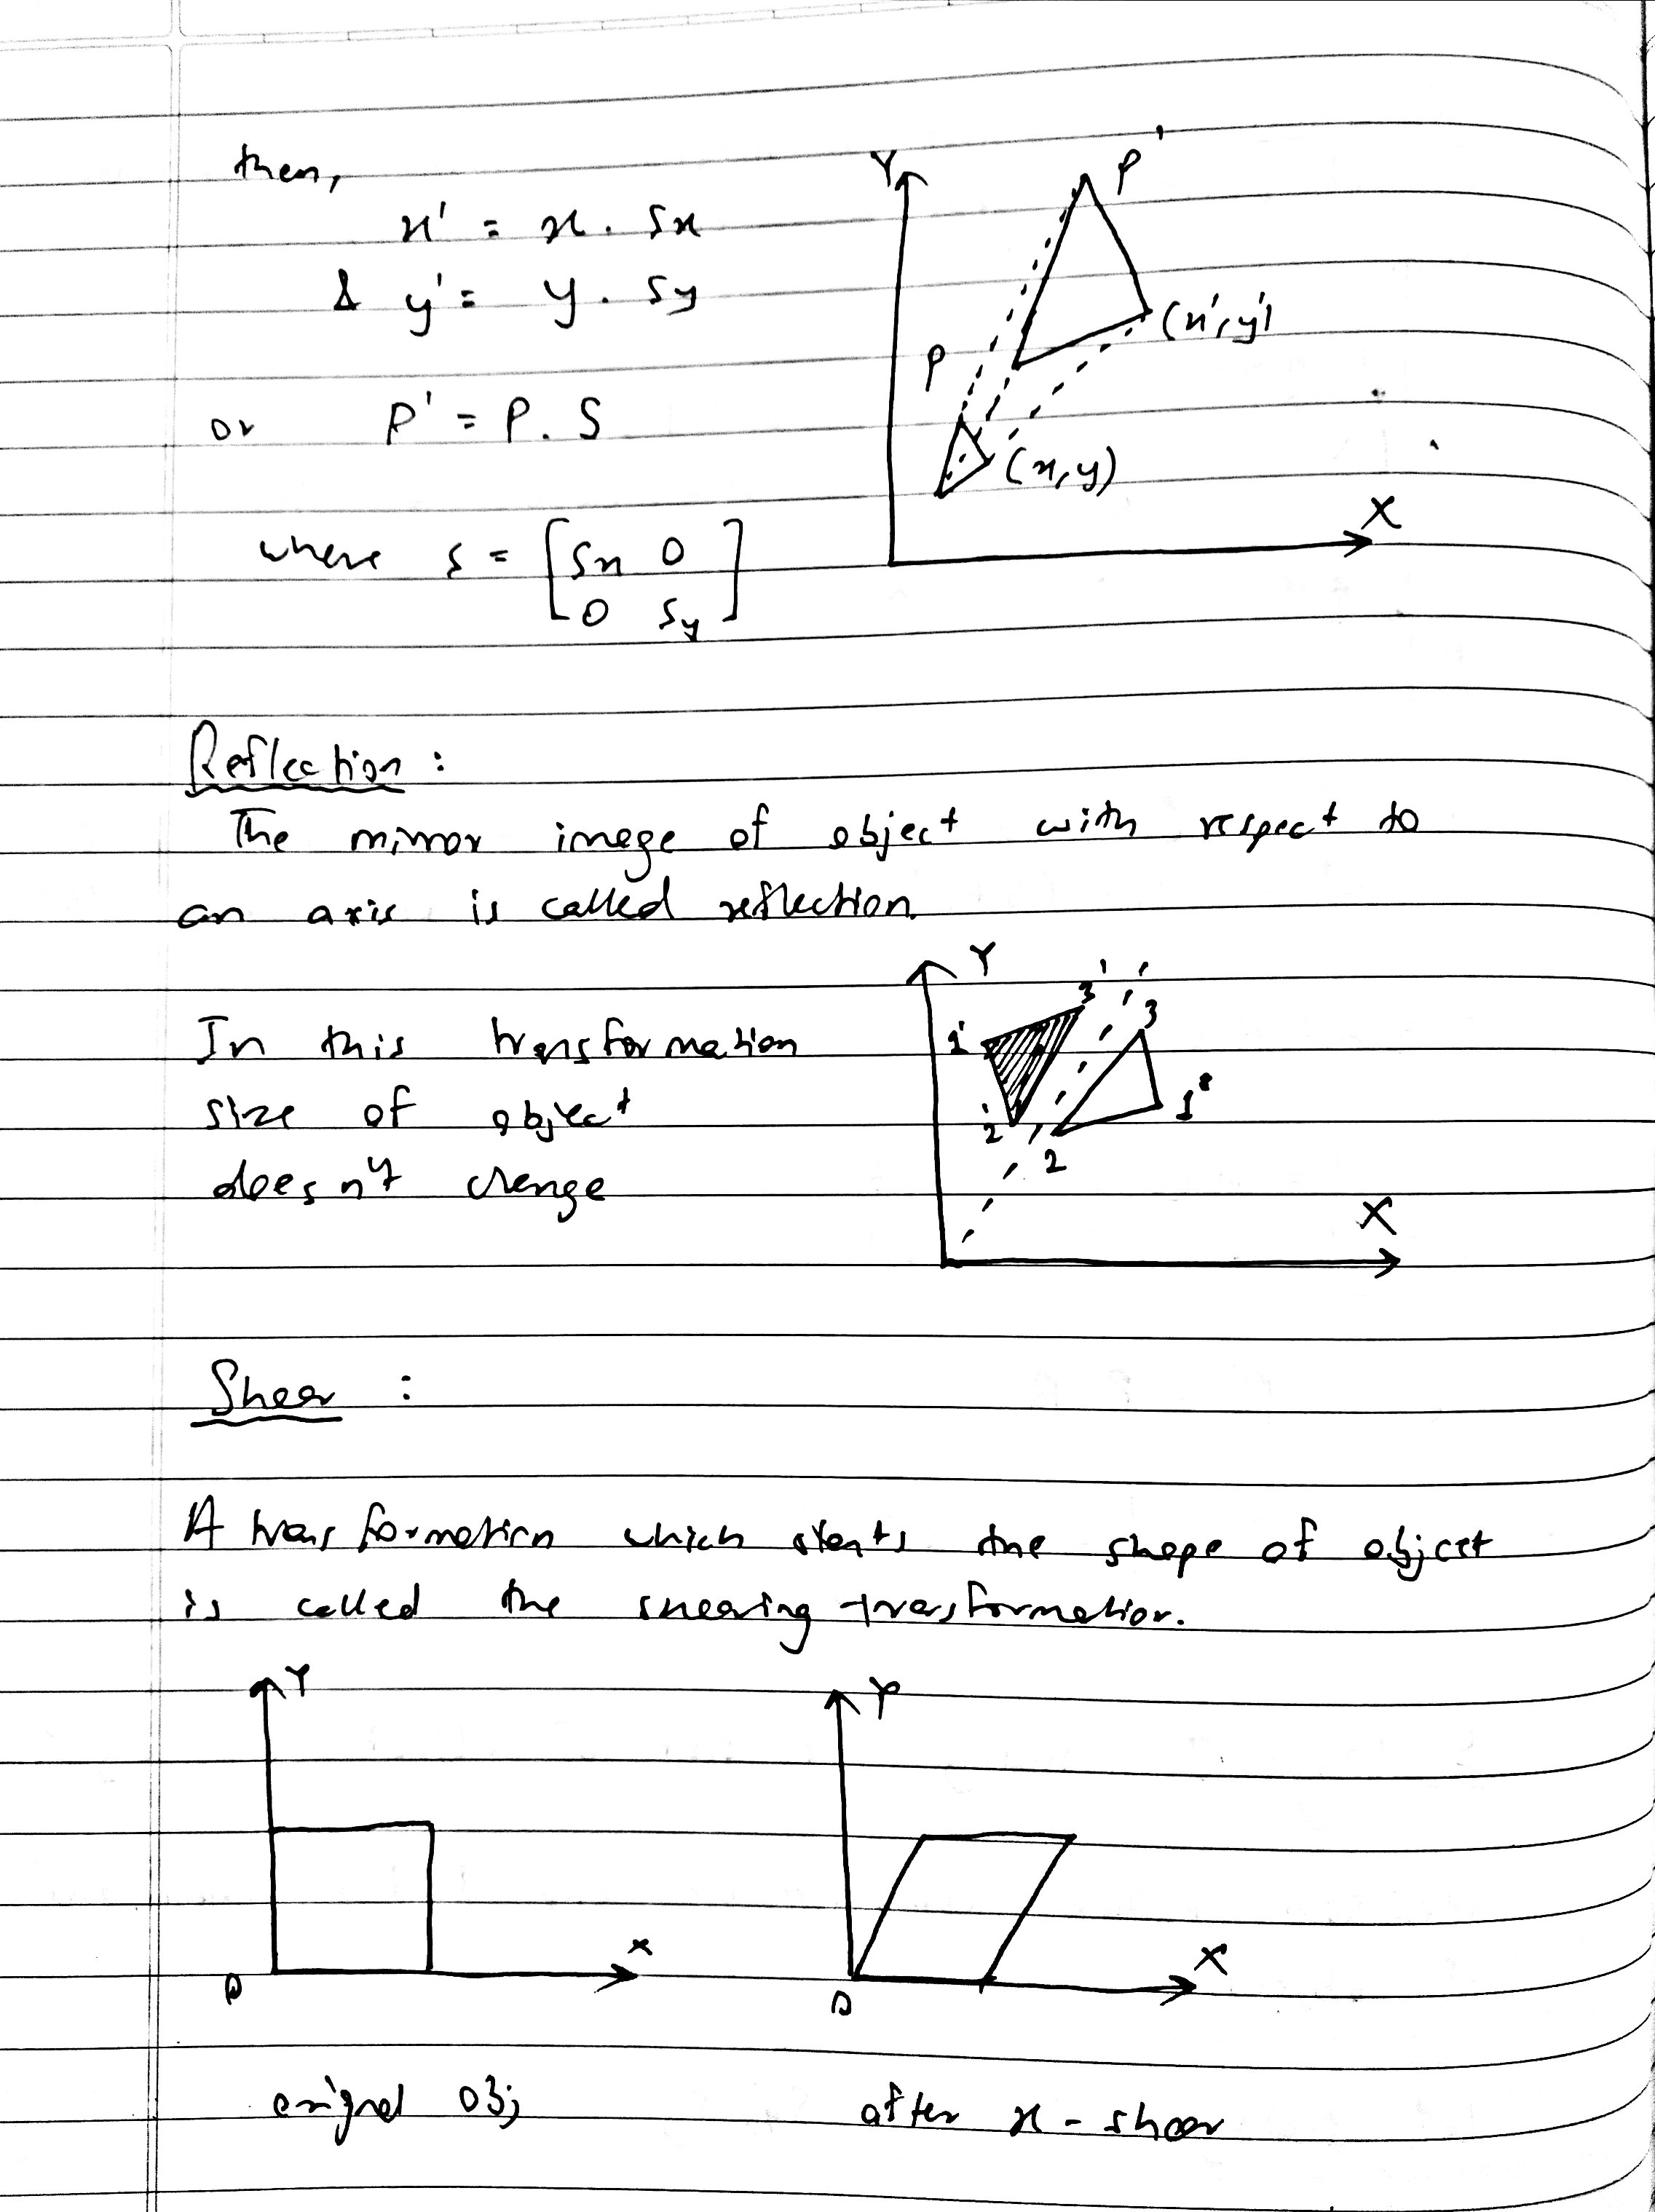 then,
x' = x . Sx
& y' = y . Sy
or P' = P . S
where S = [Sx 0
0 Sy]
Y
P'
(x', y')
P
(x, y)
X
Reflection :
The mirror image of object with respect to
an axis is called reflection.
In this transformation
size of object
doesn't change
Y
3'
3
1'
1
2'
2
X
Shear :
A transformation which slants the shape of object
is called the shearing transformation.
Y
X
0
original obj
Y
X
0
after x - shear